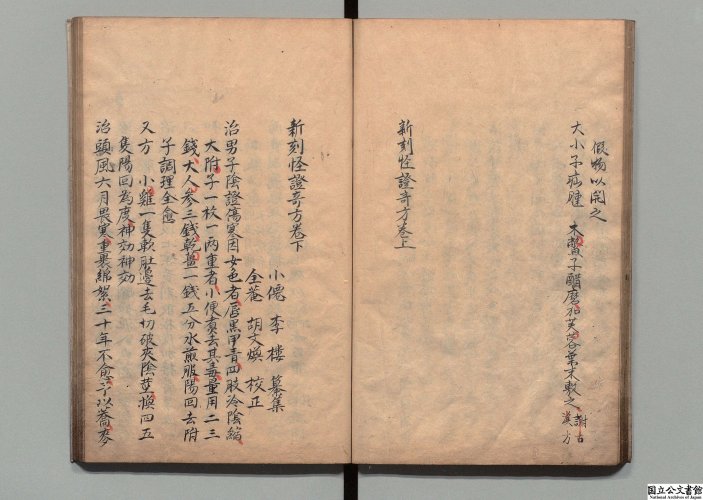 假物以開之
大小子疝腫 木鱉子醋磨加芙蓉葉末敷之 謝古漢方
新刻怪證奇方卷上
新刻怪證奇方卷下
小僊 李樓 纂集
全菴 胡文煥 校正
治男子陰證傷寒因女色者唇黑甲青四肢冷陰縮
大附子一枚一兩重者小便煮去其毒量用二三
錢大人參三錢乾薑一錢五分水煎服陽回去附
子調理全愈
又方 小雞一隻軟肚邊去毛切破夾陰莖換四五
隻陽回為度神效神效
治頭風六月畏寒重裹綿絮三十年不愈予以蕎麥
国立公文書館
National Archives of Japan